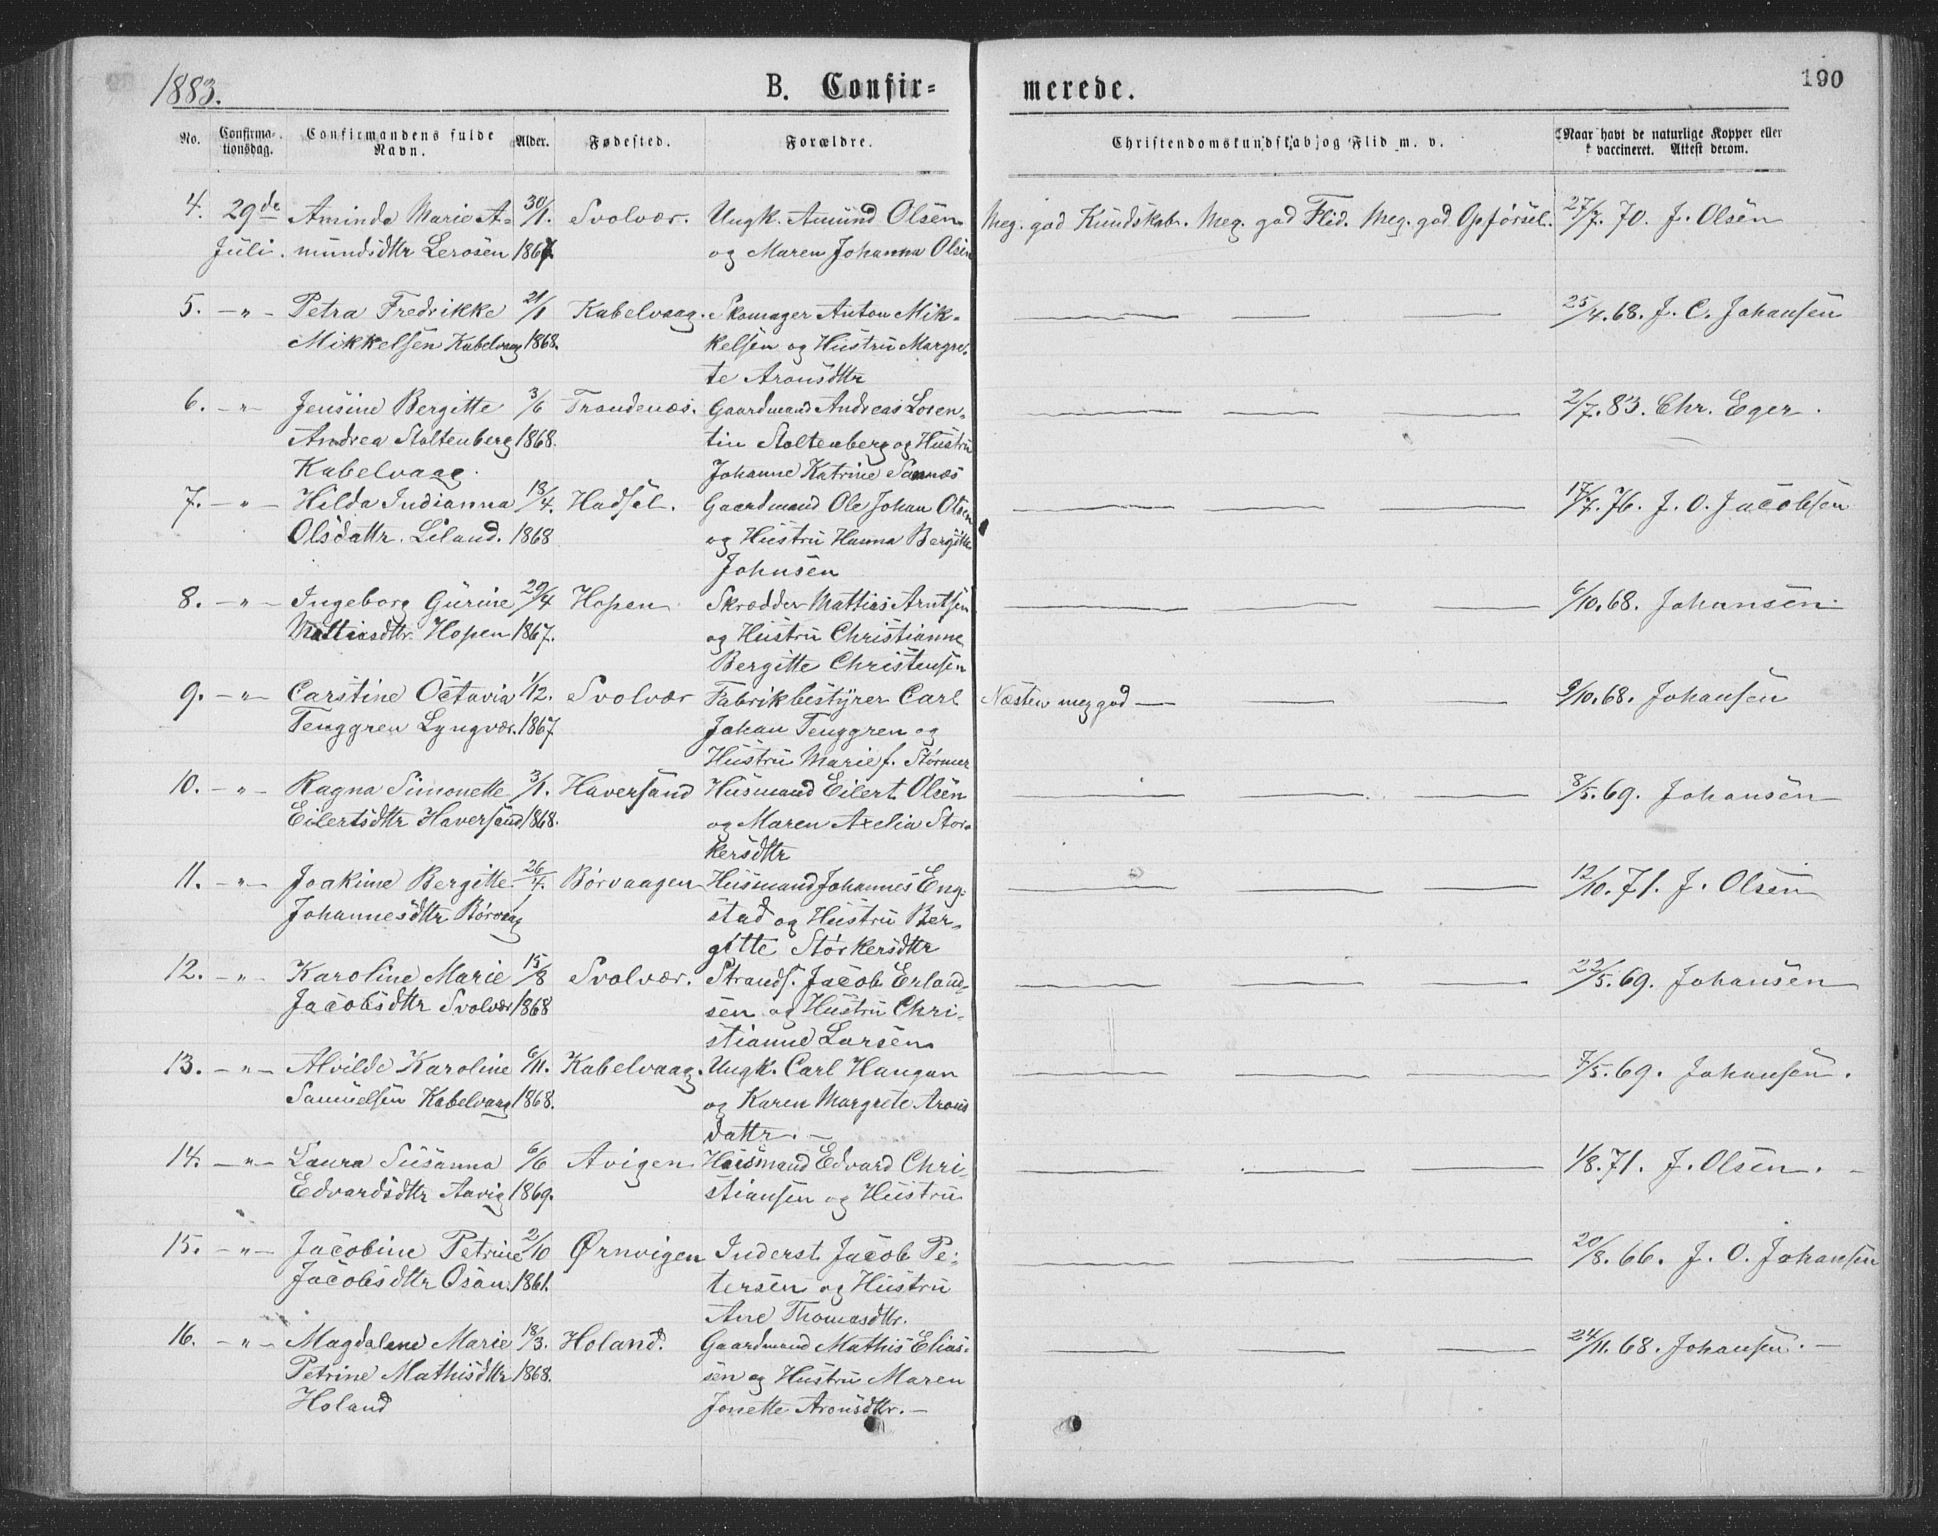 1883. B. Confir= merede. 190
No. Confirma-tionsdag. Confirmandens fulde Navn. Alder. Fødested. Forældre. Christendomskundskab, og Flid m. v. Naar havt de naturlige Kopper eller vaccineret. Attest derom.
4. 29de Aminda Marie A= 30/1. Svolvær. Ungk. Amund Olsen Meg. god Kundskab. Meg. god Flid. Meg. god Opførsel. 27/7. 70. J. Olsen
Juli. mundsdttr Lerosen 1867 og Maren Johanna Olsen
5. -"- Petra Fredrikke 21/1 Kabelvaag. Skomager Anton Mik- 25/4. 68. J. C. Johansen
Mikkelsen Kabelvaag 1868. kelsen og Hustru Margre-
te Aronsdttr
6. -"- Jensine Bergitte 3/6 Trondenæs. Gaardmand Andreas Loren- 2/7. 83. Chr. Eger.
Andrea Stoltenberg 1868. tin Stoltenberg og Hustru
Kabelvaag. Johanne Katrine Sannæs
7. -"- Hilda Indianna 13/4. Hadsel. Gaardmand Ole Johan Olsen 17/7. 76. J. O. Jacobsen
Olsdattr. Liland. 1868 og Hustru Hanna Bergitte
Johnsen
8. -"- Ingeborg Gurine 29/4 Hopen Skrædder Mattias Arntsen 6/10. 68. Johansen.
Mattiasdttr. Hopen 1867. og Hustru Christianne
Bergitte Christensen
9. -"- Carstine Octavia 1/12. Svolvær Fabrikbestyrer Carl Næsten meg god — 9/10. 68. Johansen
Tenggren Lyngvær. 1867 Johan Tenggren og
Hustru Marie f. Størmer
10. -"- Ragna Simonette 3/1. Haversand Husmand Eilert Olsen 8/5. 69. Johansen
Eilertsdttr Haversand 1868. og Maren Axelia Stor-
kersdttr
11. -"- Joakime Bergitte 26/4. Børvaagen Husmand Johannes Eng- 12/10. 71. J. Olsen
Johannesdttr Børvaag stad og Hustru Ber-
gitte Storkersdttr
12. -"- Karoline Marie 15/8 Svolvær. Strands. Jacob Erland- 22/5. 69. Johansen
Jacobsdttr Svolvær 1868 sen og Hustru Chri-
stianne Larsen
13. -"- Alvilde Karoline 6/11. Kabelvaag. Ungk. Carl Haugan 7/5. 69. Johansen.
Samuelsen Kabelvaag 1868. og Karen Margrete Arons
dattr. —
14. -"- Laura Susanna 6/6 Avigen Husmand Edvard Chri- 1/8. 71. J. Olsen. —
Edvardsdttr Aavig 1869. stiansen og Hustru
15. -"- Jacobine Petrine 2/10 Ørnvigen Inderst Jacob Pe- 20/8. 66. J. O. Johansen
Jacobsdttr Osan. 1861. tersen og Hustru
Ane Thomasdttr.
16. -"- Magdalene Marie 18/3. Holand. Gaardmand Mathis Elias- 24/11. 68. Johansen. —
Petrine Mathisdttr 1868. sen og Hustru Maren
Holand Jonette Aronsdttr. —